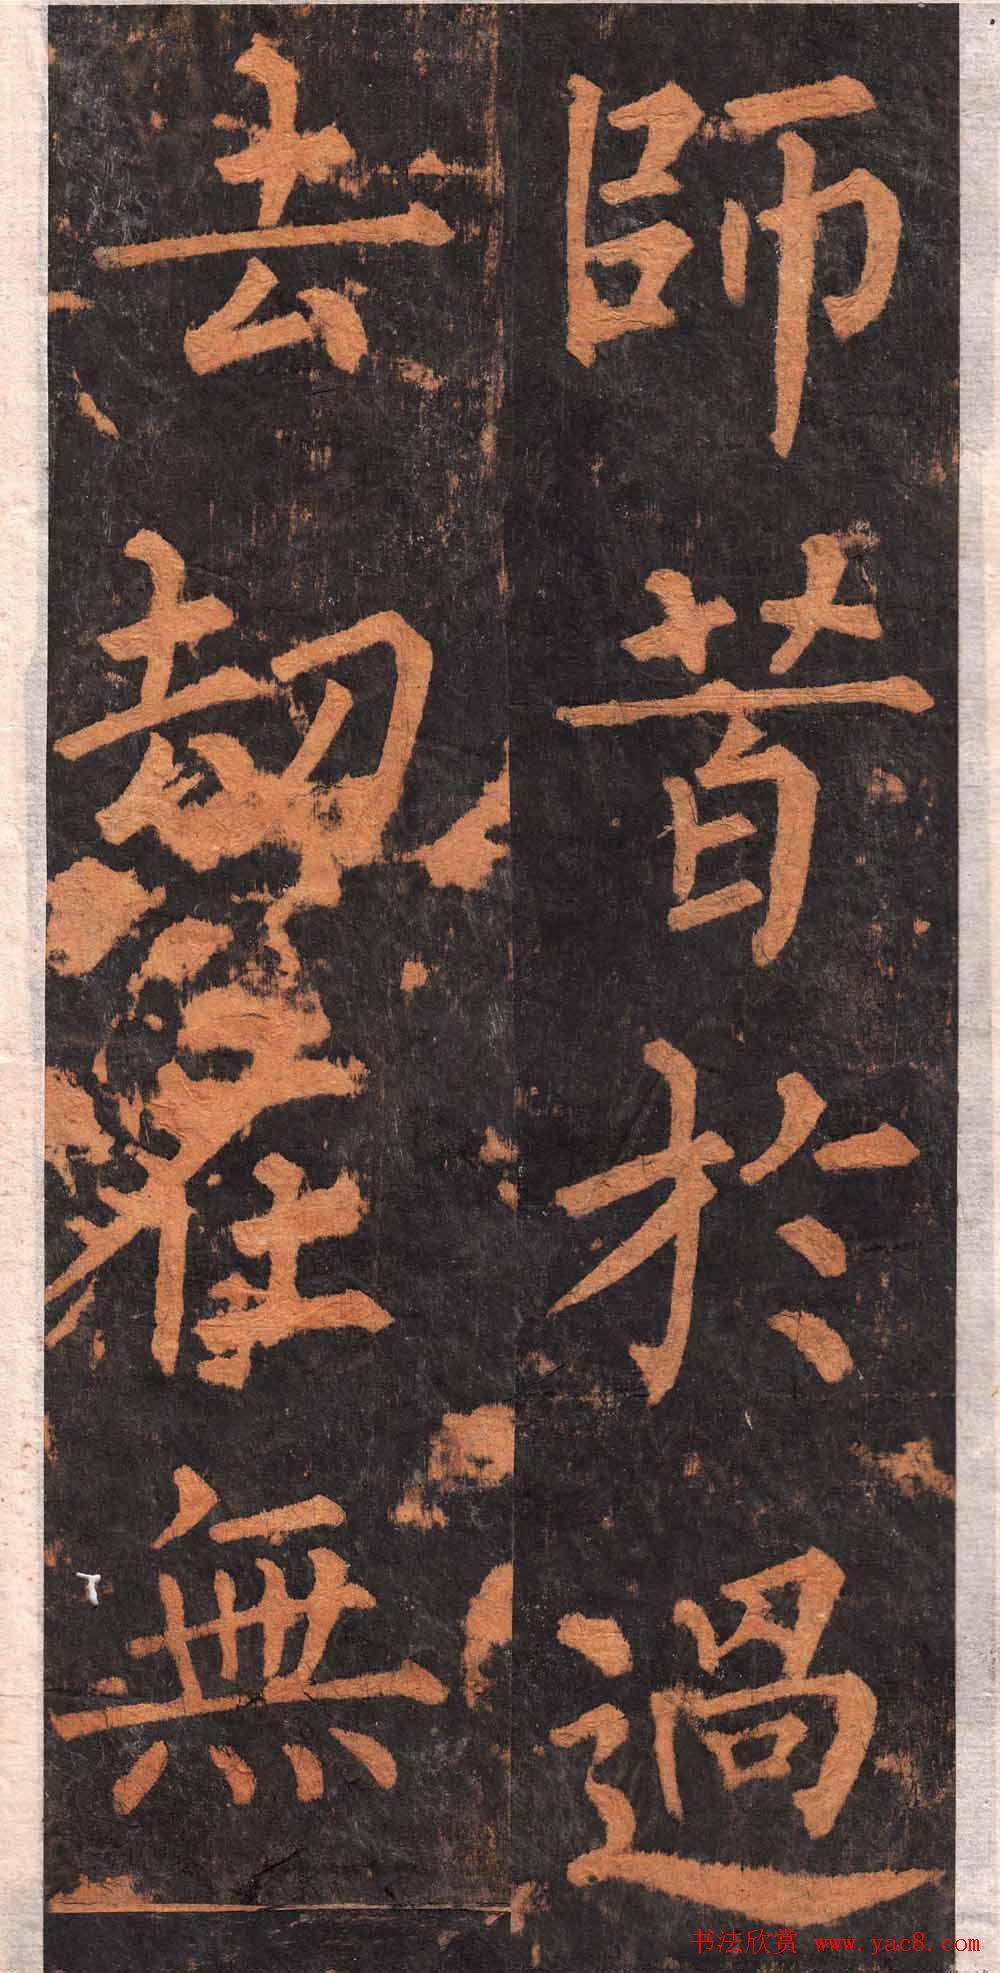 師昔於過
去刼無
书法欣赏 www.yac8.com